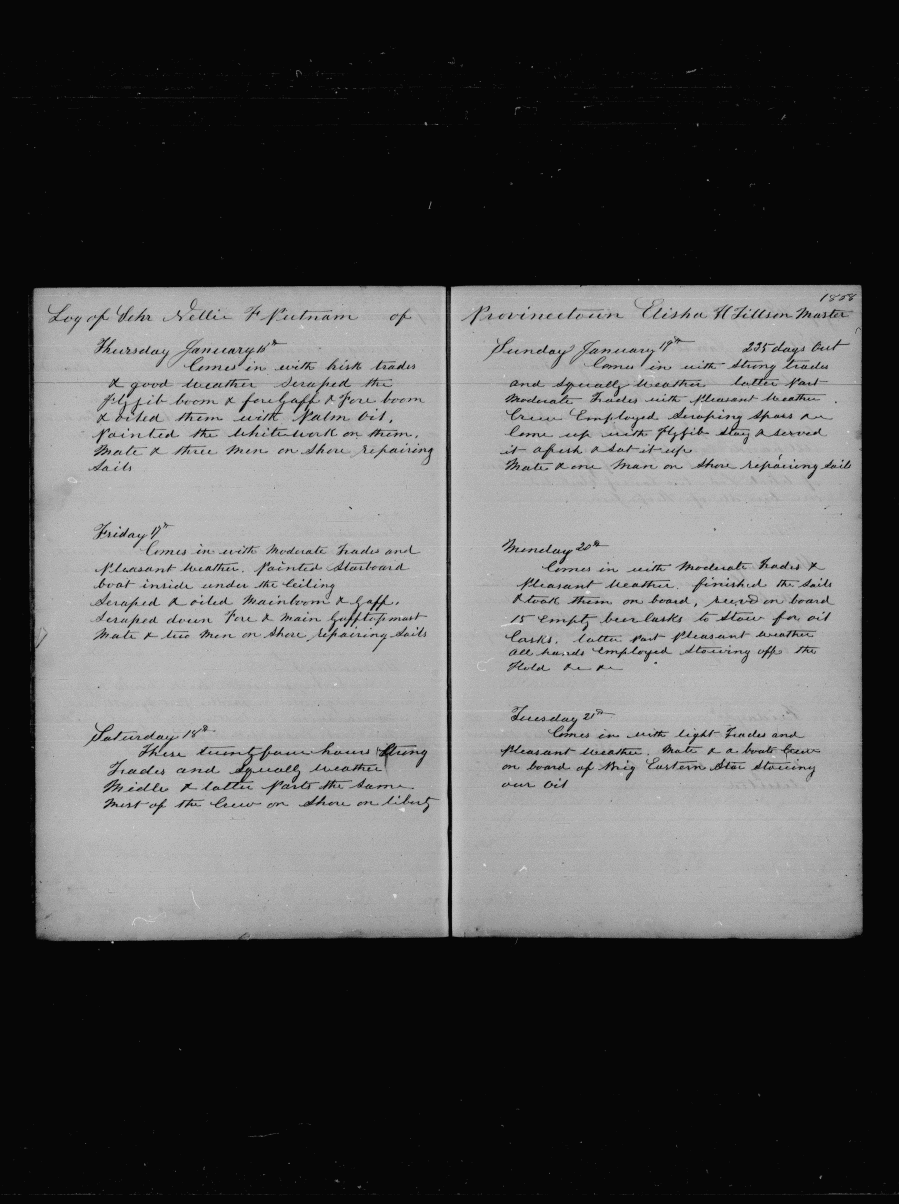 Log of Schr Nellie F Putnam of
Thursday January 16th
Comes in with brisk trades
& good weather scraped the
fly jib boom & fore Gaff & Fore boom
& oiled them with Palm Oil,
Painted the white work on them.
Mate & three men on Shore repairing
Sails
Friday 17th
Comes in with Moderate Trades and
Pleasant Weather. Painted Starboard
boat inside under the Ceiling
Scraped & oiled Mainboom & Gaff.
Scraped down Fore & Main Gafftopmast
Mate & two Men on Shore repairing Sails
Saturday 18th
These twenty four hours Strong
Trades and Squally Weather
Midle & latter Parts the Same
Most of the Crew on Shore on liberty
Provincetown Elisha H Tillson Master
Sunday January 19th 235 days Out
Comes in with Strong trades
and Squally Weather latter Part
Moderate Trades with Pleasant Weather.
Crew Employed Scraping Spars &c
Come up with Flyjib Stay & served
it afresh & sat it up
Mate & one Man on Shore repairing Sails
Monday 20th
Comes in with Moderate Trades &
Pleasant Weather. finished the Sails
& took them on board, recvd on board
15 Empty beer Casks to Stow for oil
Casks. latter Part Pleasant Weather
All hands Employed Stowing off the
Hold &c &c
Tuesday 21st
Comes in with light Trades and
Pleasant Weather. Mate & a boats Crew
on board of Brig Eastern Star Stowing
our Oil